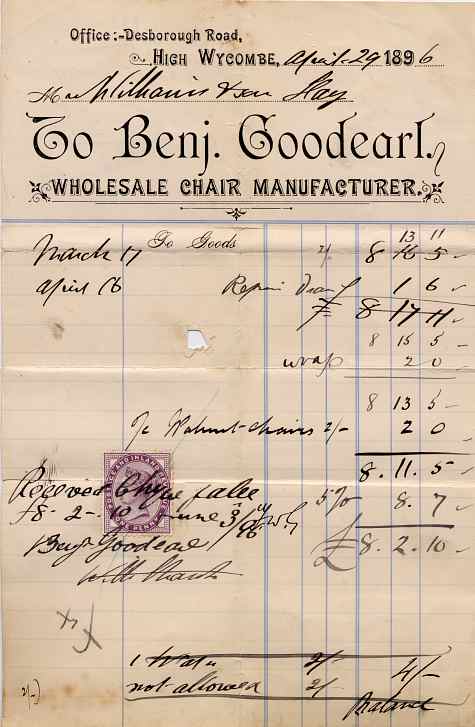 Office :- Desborough Road,
High Wycombe, April 29 1896
Williams & son Hay
To Benj. Goodearl.
WHOLESALE CHAIR MANUFACTURER.
13 11
March 17 To Goods 2/ 8 5
April 16 Repair 1 6
£ 8 17 11
8 15 5
wrap 2 0
8 13 5
Walnut chairs 2/- 2 0
8. 11. 5
Received Chque 5% 8. 7
£8 - 2 - 10 June 3 /96 £ 8. 2. 10
Benj Goodearl
1 2/- 4/-
not allowed 2/-
2/-) Balance